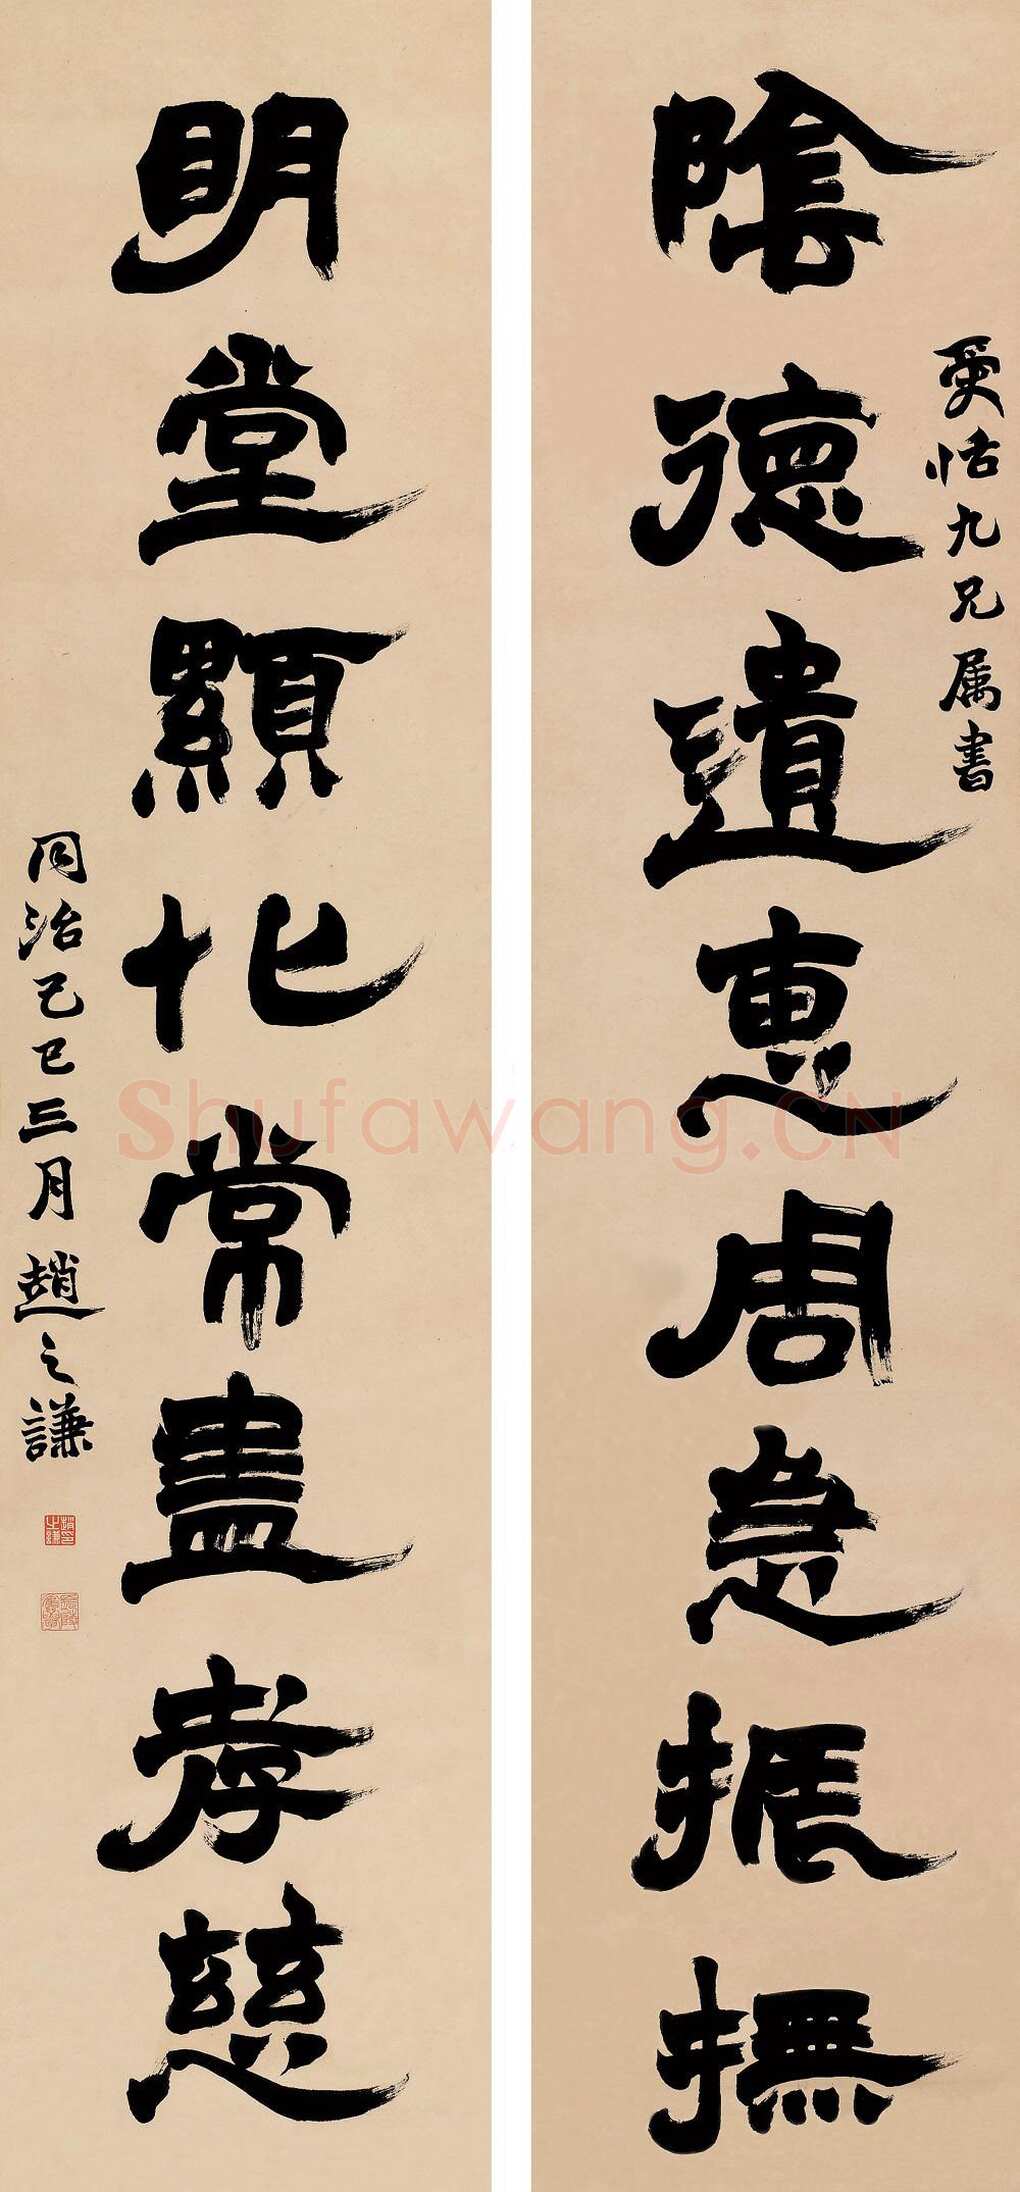 陰德遺惠周急振撫
爱恬九兄属書
明堂顯化常盡孝慈
同治己巳三月趙之謙
Shufawang.CN